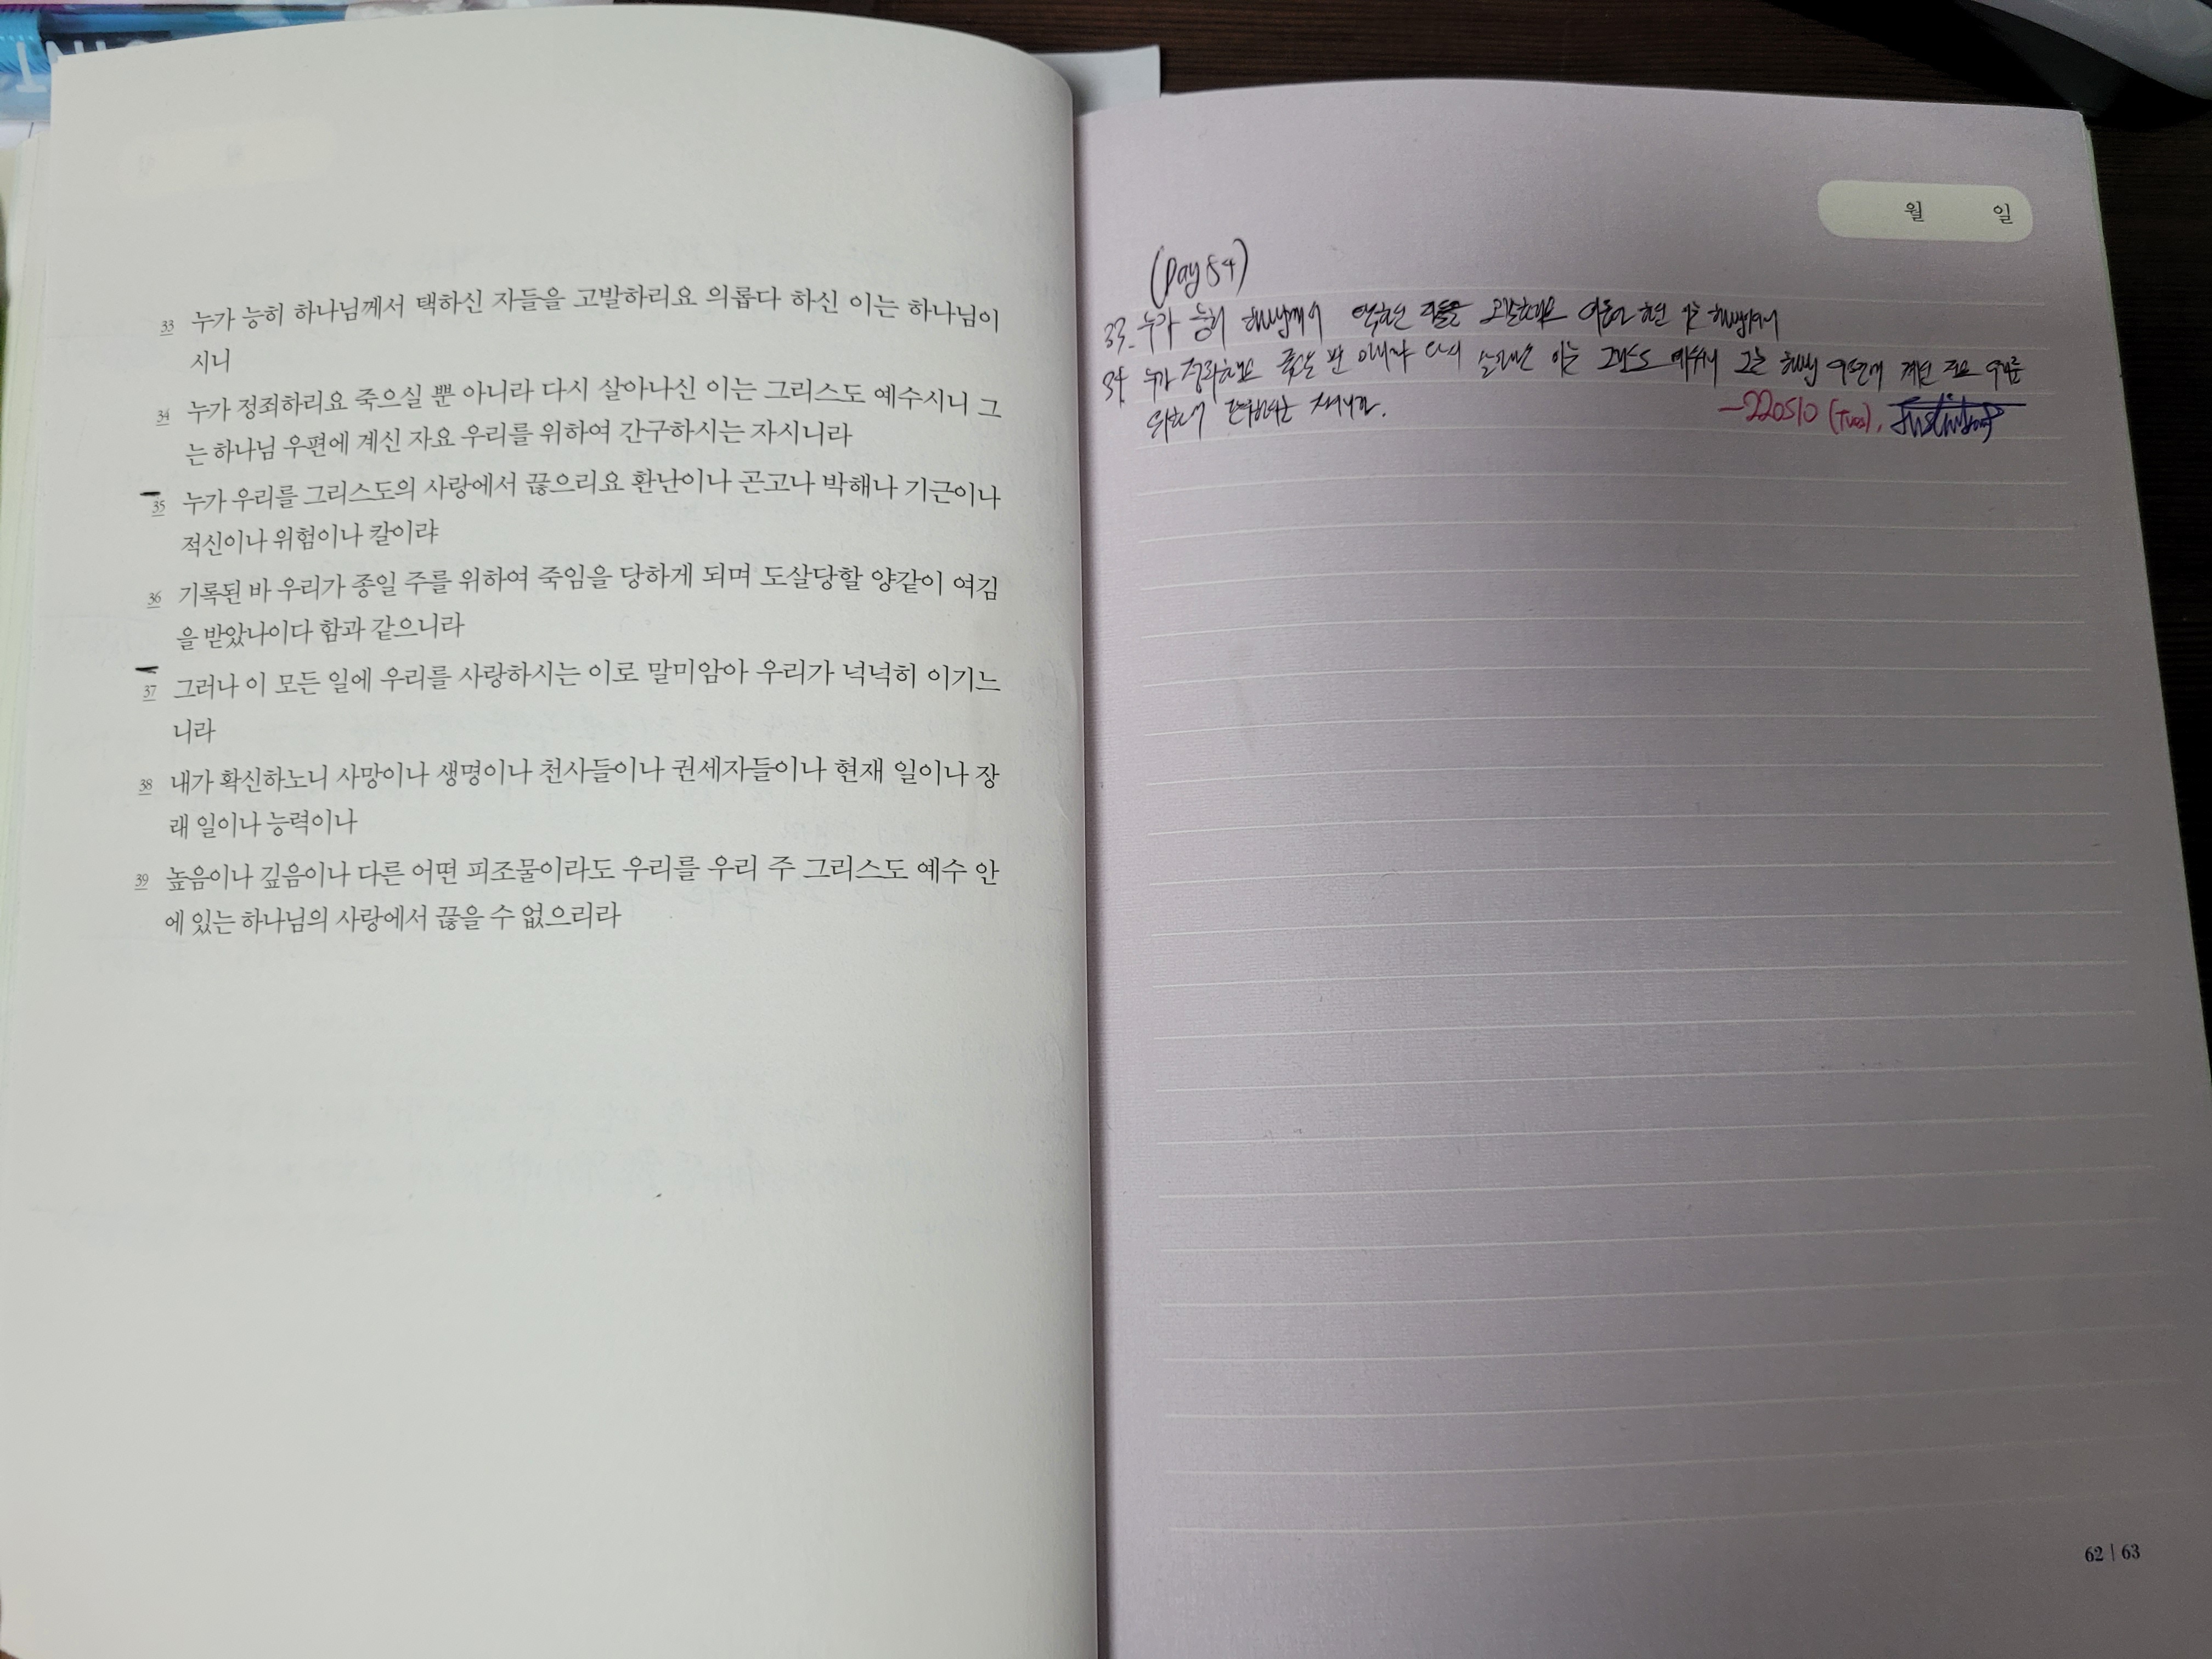 33 누가 능히 하나님께서 택하신 자들을 고발하리요 의롭다 하신 이는 하나님이
시니
34 누가 정죄하리요 죽으실 뿐 아니라 다시 살아나신 이는 그리스도 예수시니 그
는 하나님 우편에 계신 자요 우리를 위하여 간구하시는 자시니라
35 누가 우리를 그리스도의 사랑에서 끊으리요 환난이나 곤고나 박해나 기근이나
적신이나 위험이나 칼이랴
36 기록된 바 우리가 종일 주를 위하여 죽임을 당하게 되며 도살당할 양같이 여김
을 받았나이다 함과 같으니라
37 그러나 이 모든 일에 우리를 사랑하시는 이로 말미암아 우리가 넉넉히 이기느
니라
38 내가 확신하노니 사망이나 생명이나 천사들이나 권세자들이나 현재 일이나 장
래 일이나 능력이나
39 높음이나 깊음이나 다른 어떤 피조물이라도 우리를 우리 주 그리스도 예수 안
에 있는 하나님의 사랑에서 끊을 수 없으리라
월 일
(Day 54)
33. 누가 능히 하나님께서 택하신 자들을 고발하리요 의롭다 하신 이는 하나님이시니
34 누가 정죄하리요 죽으실 뿐 아니라 다시 살아나신 이는 그리스도 예수시니 그는 하나님 우편에 계신 자요 우리를
위하여 간구하시는 자시니라.
-220510 (Tues),
62 | 63